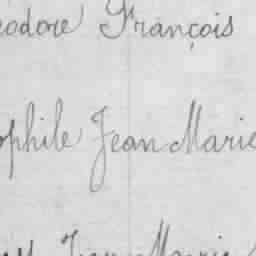 eodore François
ophile Jean Marie
Jean Marie